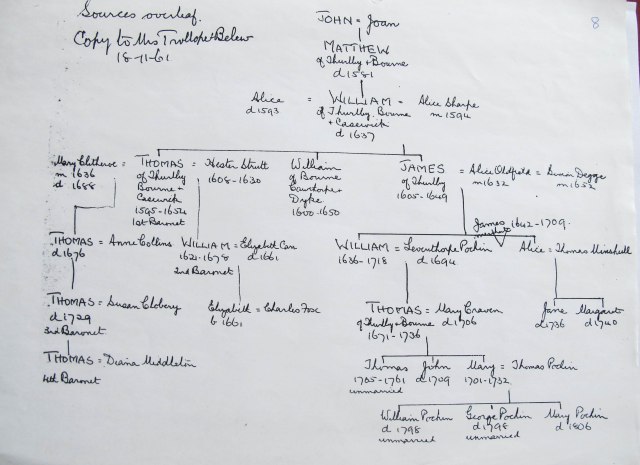 Sources overleaf.
Copy to Mrs Trollope-Bellew
18-11-61
8
JOHN = Joan
MATTHEW
of Thurlby + Bourne
d 1581
Alice = WILLIAM = Alice Sharpe
d 1593 of Thurlby, Bourne m 1594
+ Casewick
d 1637
Mary Clitheroe = THOMAS = Hester Strutt William JAMES = Alice Oldfield = Simon Degge
m 1636 of Thurlby 1608-1630 of Bourne of Thurlby m 1632 m 1652
d 1688 Bourne + 1605-1649
Casewick Dyke
1595-1654 1600-1650
1st Baronet
James 1642-1709.
THOMAS = Anne Collins WILLIAM = Elizabeth Carr WILLIAM = Leventhorpe Pochin Alice = Thomas Minshull
d 1676 1621-1678 d 1661 1636-1718 d 1694
2nd Baronet
THOMAS = Susan Clobery Elizabeth = Charles Fox THOMAS = Mary Craven Jane Margaret
d 1729 b 1661 of Thurlby + Bourne d 1706 d 1736 d 1740
3rd Baronet 1671-1736
THOMAS = Diana Middleton Thomas John Mary = Thomas Pochin
4th Baronet 1705-1761 d 1709 1701-1732
unmarried
William Pochin George Pochin Mary Pochin
d 1798 d 1798 d 1806
unmarried unmarried